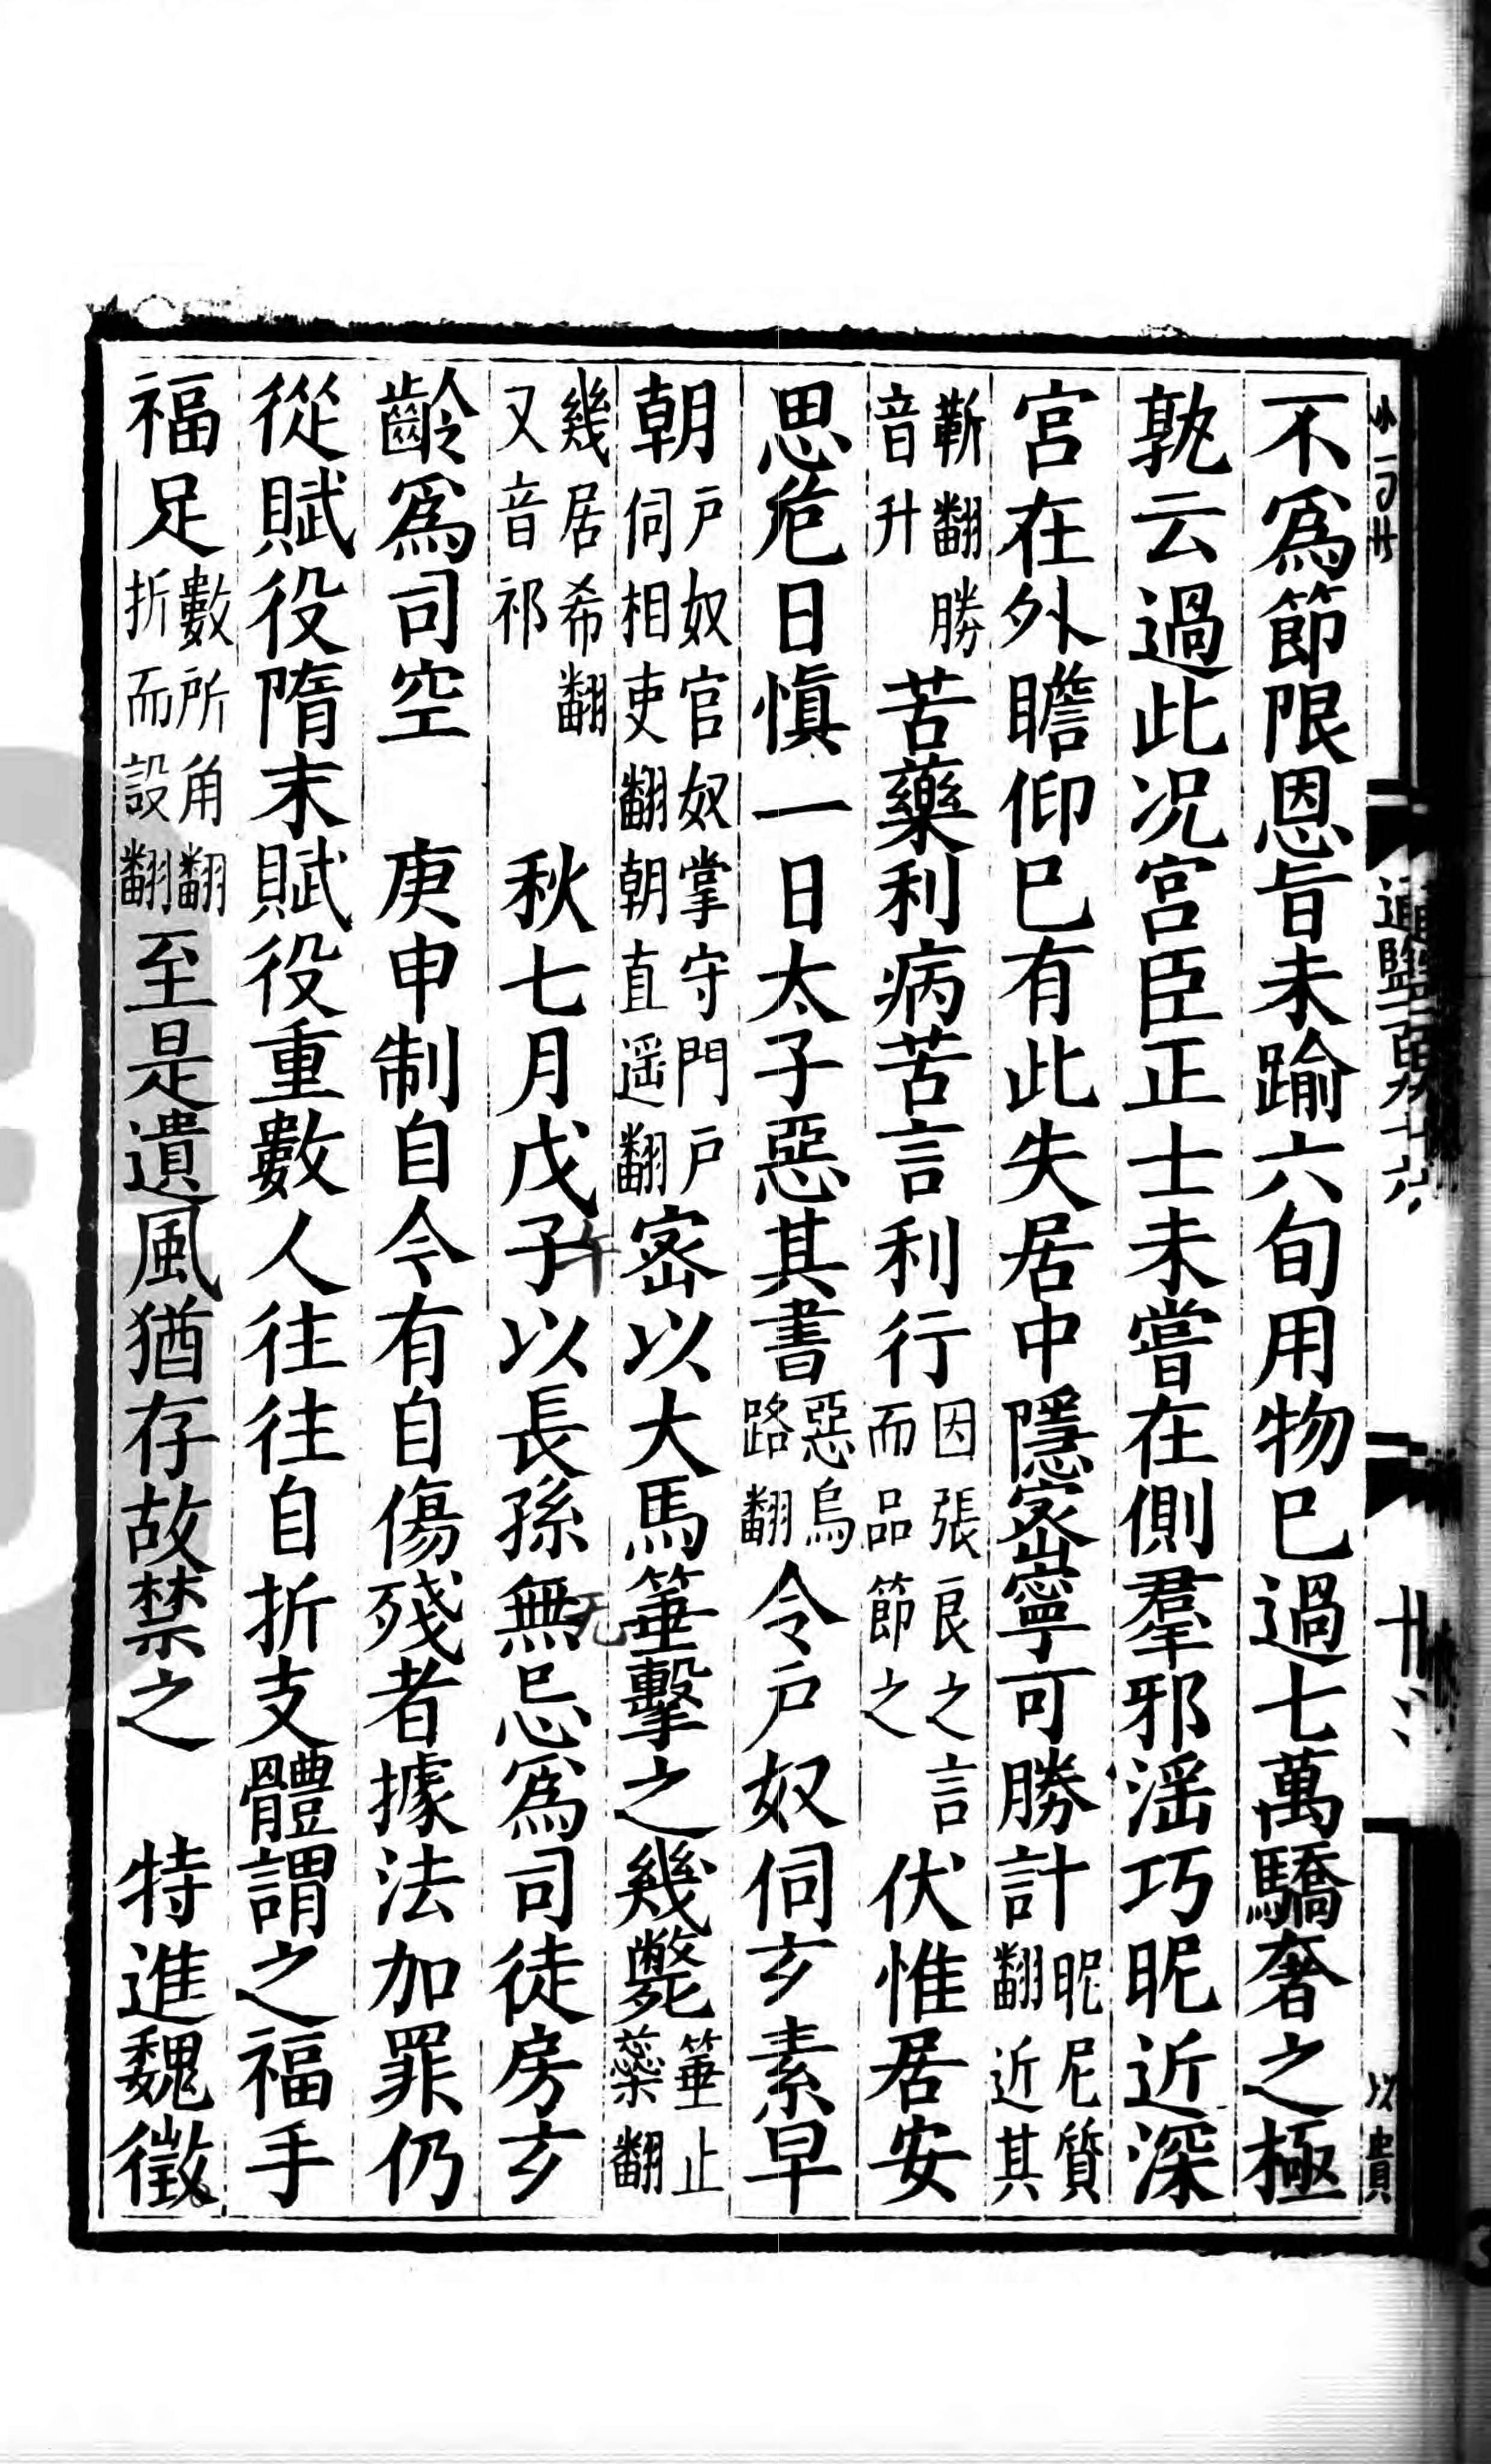 不爲節限恩旨未踰六旬用物巳過七萬驕奢之極
孰云過此况宫臣正士未嘗在側羣邪淫巧昵近深
宫在外瞻仰巳有此失居中隱宻寧可勝計昵尼質翻近其
靳翻勝音升苦藥利病苦言利行因張良之言而品節之伏惟居安
思危日慎一日太子惡其書惡烏路翻令户奴伺玄素早
朝户奴官奴掌守門户伺相吏翻朝直遥翻宻以大馬箠擊之幾斃箠止蘂翻
幾居希翻又音祁秋七月戊子以長孫無忌爲司徒房玄
齡爲司空庚申制自今有自傷殘者據法加罪仍
從賦役隋末賦役重數人往往自折支體謂之福手
福足數所角翻折而設翻至是遺風猶存故禁之特進魏徵
午
无